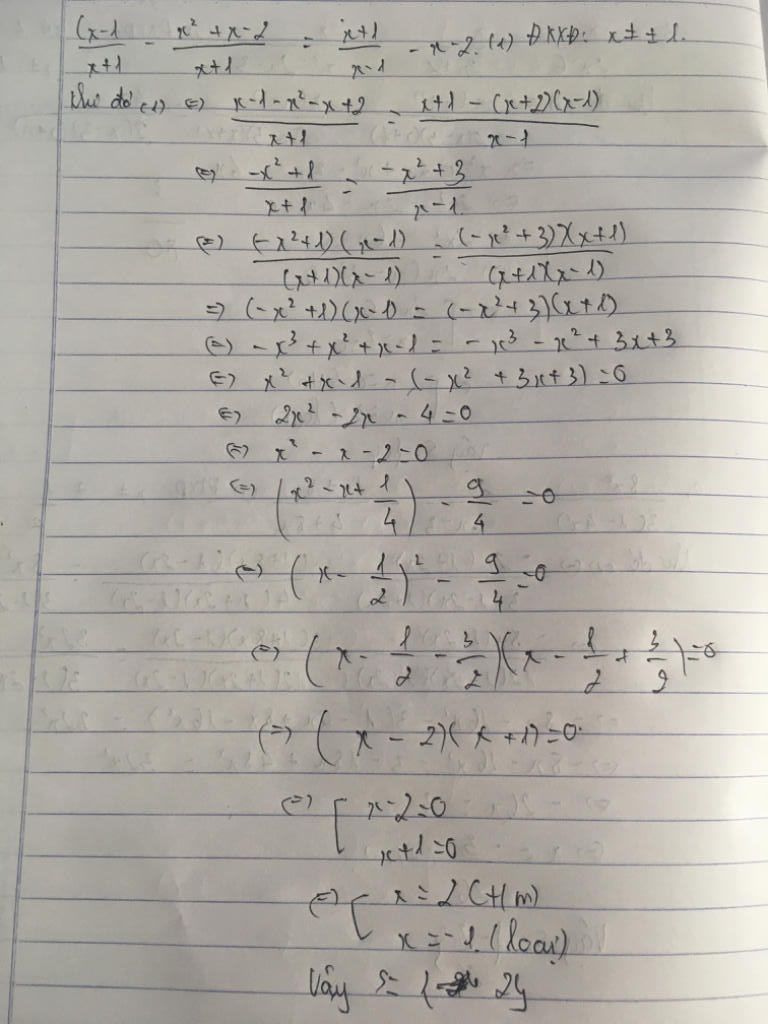 (x-1/x+1 - x² + x - 2/x+1 = x+1/x-1 - x-2. (1) ĐKXĐ: x ≠ ± 1.
Khi đó (1) ⇔ x-1-x²-x+2/x+1 = x+1 - (x+2)(x-1)/x-1
⇔ -x²+1/x+1 = -x²+3/x-1.
⇔ (-x²+1)(x-1)/(x+1)(x-1) = (-x²+3)(x+1)/(x+1)(x-1)
⇒ (-x²+1)(x-1) = (-x²+3)(x+1)
⇔ -x³ + x² + x - 1 = -x³ - x² + 3x + 3
⇔ x² + x - 1 - (-x² + 3x + 3) = 0
⇔ 2x² - 2x - 4 = 0
⇔ x² - x - 2 = 0
⇔ (x² - x + 1/4) - 9/4 = 0
⇔ (x - 1/2)² - 9/4 = 0
⇔ (x - 1/2 - 3/2)(x - 1/2 + 3/2) = 0
⇔ (x - 2)(x + 1) = 0.
⇔ [ x - 2 = 0
x + 1 = 0
⇔ [ x = 2 (t/m)
x = -1. (loại)
Vậy S = { 2}